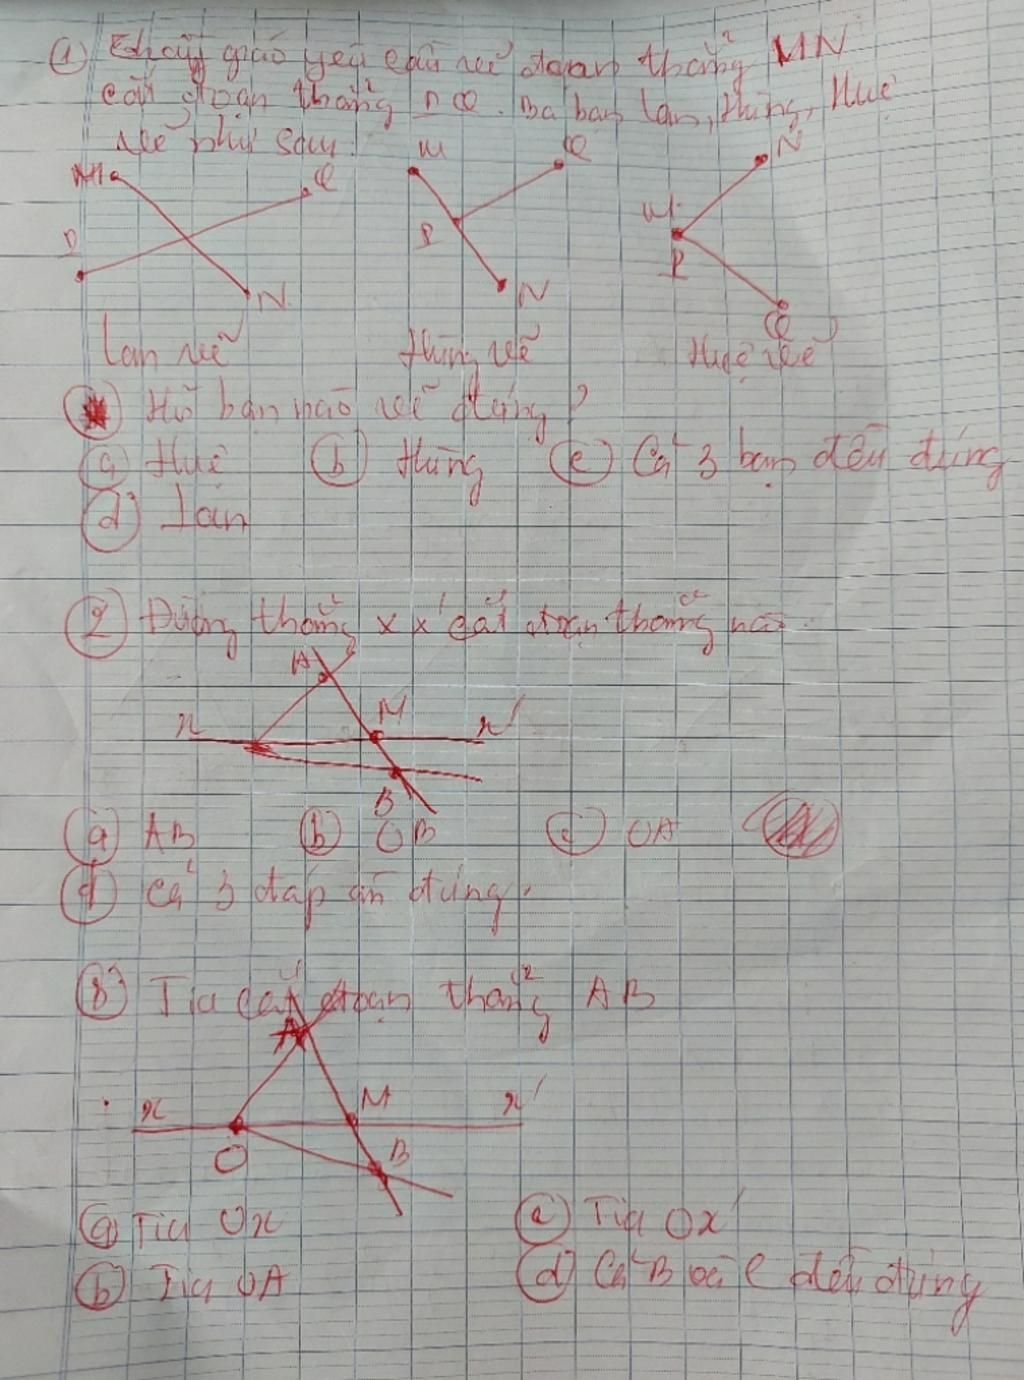 ① Thầy giáo yêu cầu vẽ đoạn thẳng MN
cắt đoạn thẳng PQ. Ba bạn Lan, Hùng, Huệ
vẽ như sau:
M Q M Q N
P P M P
N N Q
Lan vẽ Hùng vẽ Huệ vẽ
Hỏi bạn nào vẽ đúng?
ⓐ Huệ ⓑ Hùng ⓒ Cả 3 bạn đều đúng
ⓓ Lan
② Đường thẳng xx' cắt đoạn thẳng nào.
A
x M x'
B
ⓐ AB ⓑ OB ⓒ OA
ⓓ Cả 3 đáp án đúng.
③ Tia cắt đoạn thẳng AB
A
x M x'
O B
ⓐ Tia Ox ⓒ Tia Ox'
ⓑ Tia OA ⓓ Cả B và C đều đúng